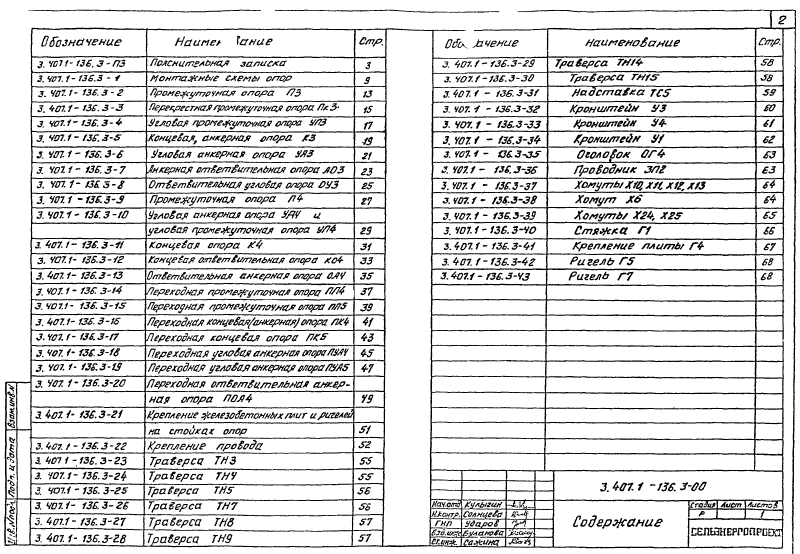 2
Обозначение Наименование Стр.
3.407.1-136.3-ПЗ Пояснительная записка 3
3.407.1-136.3-1 Монтажные схемы опор 9
3.407.1-136.3-2 Промежуточная опора П3 13
3.407.1-136.3-3 Перекрестная промежуточная опора Пк3 15
3.407.1-136.3-4 Угловая промежуточная опора УП3 17
3.407.1-136.3-5 Концевая, анкерная опора К3 19
3.407.1-136.3-6 Угловая анкерная опора УА3 21
3.407.1-136.3-7 Анкерная ответвительная опора АО3 23
3.407.1-136.3-8 Ответвительная угловая опора ОУ3 25
3.407.1-136.3-9 Промежуточная опора П4 27
3.407.1-136.3-10 Угловая анкерная опора УА4 и
угловая промежуточная опора УП4 29
3.407.1-136.3-11 Концевая опора К4 31
3.407.1-136.3-12 Концевая ответвительная опора КО4 33
3.407.1-136.3-13 Ответвительная анкерная опора ОА4 35
3.407.1-136.3-14 Переходная промежуточная опора ПП4 37
3.407.1-136.3-15 Переходная промежуточная опора ПП5 39
3.407.1-136.3-16 Переходная концевая(анкерная) опора ПК4 41
3.407.1-136.3-17 Переходная концевая опора ПК5 43
3.407.1-136.3-18 Переходная угловая анкерная опора ПУА4 45
3.407.1-136.3-19 Переходная угловая анкерная опора ПУА5 47
3.407.1-136.3-20 Переходная ответвительная анкер-
ная опора ПОА4 49
3.407.1-136.3-21 Крепление железобетонных плит и ригелей
на стойках опор 51
3.407.1-136.3-22 Крепление провода 52
3.407.1-136.3-23 Траверса ТН3 55
3.407.1-136.3-24 Траверса ТН4 55
3.407.1-136.3-25 Траверса ТН5 56
3.407.1-136.3-26 Траверса ТН7 56
3.407.1-136.3-27 Траверса ТН8 57
3.407.1-136.3-28 Траверса ТН9 57
Взам.инв.№
Подп. и дата
Инв.№подл.
Обозначение Наименование Стр.
3.407.1-136.3-29 Траверса ТН14 58
3.407.1-136.3-30 Траверса ТН15 58
3.407.1-136.3-31 Надставка ТС5 59
3.407.1-136.3-32 Кронштейн У3 60
3.407.1-136.3-33 Кронштейн У4 61
3.407.1-136.3-34 Кронштейн У1 62
3.407.1-136.3-35 Оголовок ОГ4 63
3.407.1-136.3-36 Проводник ЗП2 63
3.407.1-136.3-37 Хомуты Х10, Х11, Х12, Х13 64
3.407.1-136.3-38 Хомут Х6 64
3.407.1-136.3-39 Хомуты Х24, Х25 65
3.407.1-136.3-40 Стяжка Г1 66
3.407.1-136.3-41 Крепление плиты Г4 67
3.407.1-136.3-42 Ригель Г5 68
3.407.1-136.3-43 Ригель Г7 68
3.407.1-136.3-00
Нач.отд Кулыгин
Н.контр. Солнцева
ГИП Ударов
Вед.инж Буланова
Ст.инж. Сажина
Содержание
Стадия Лист Листов
Р 1
СЕЛЬЭНЕРГОПРОЕКТ